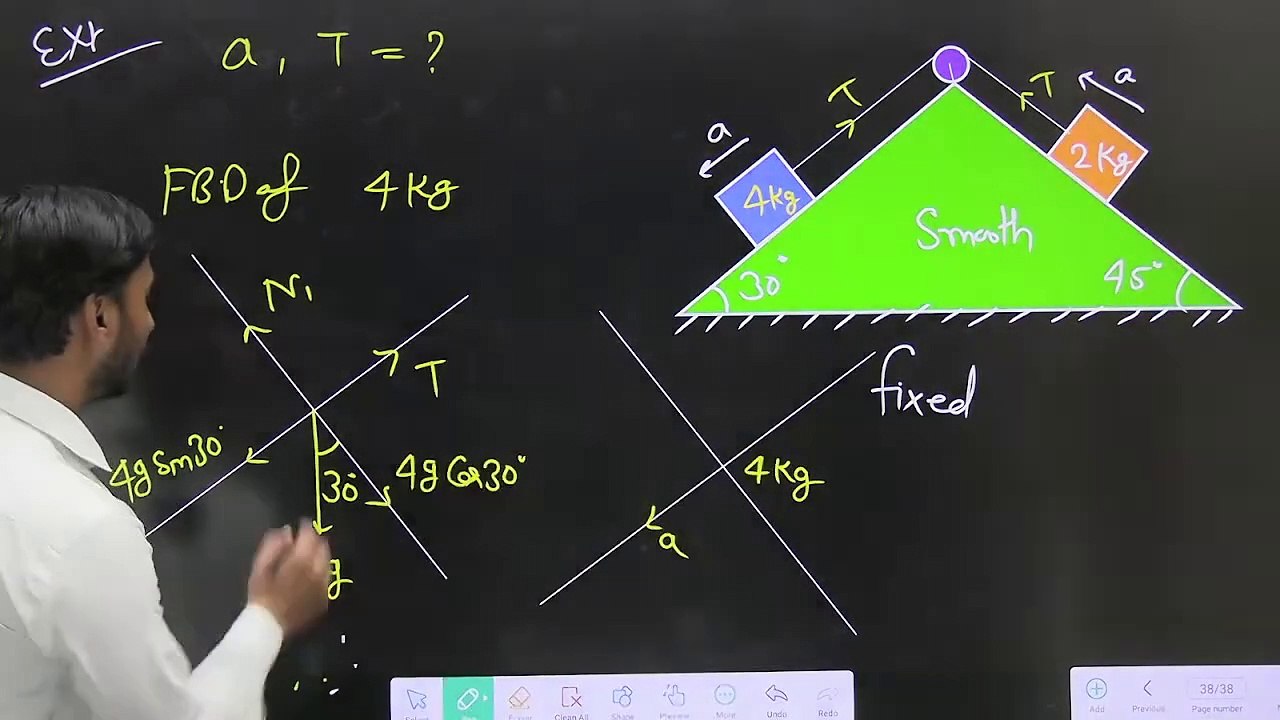 Ex:
a, T = ?
FBD of 4 Kg
N₁
T
4g Sin30°
30°
4g Cos30°
g
a
T
4Kg
T
a
2Kg
Smooth
30°
45°
fixed
4Kg
a
Clear All
Shape
Preview
More
Undo
Redo
Add
Previous
38/38
Page number